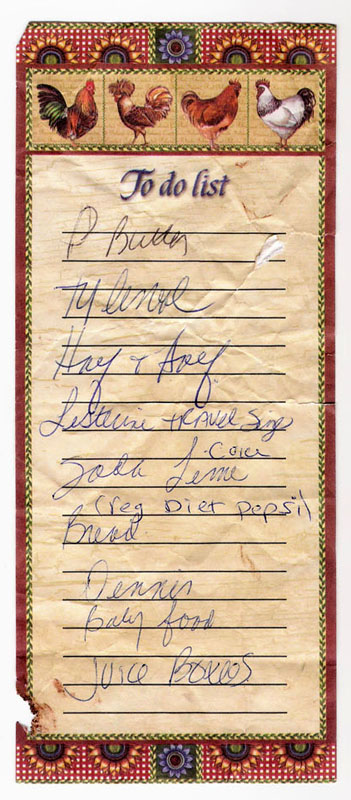 To do list
P Butter
Tylenol
Hay &
Listerine TRAVEL Size
Coke
Soda Lime
(reg Diet Pepsi)
Bread
Dennis
Baby food
Juice Boxes